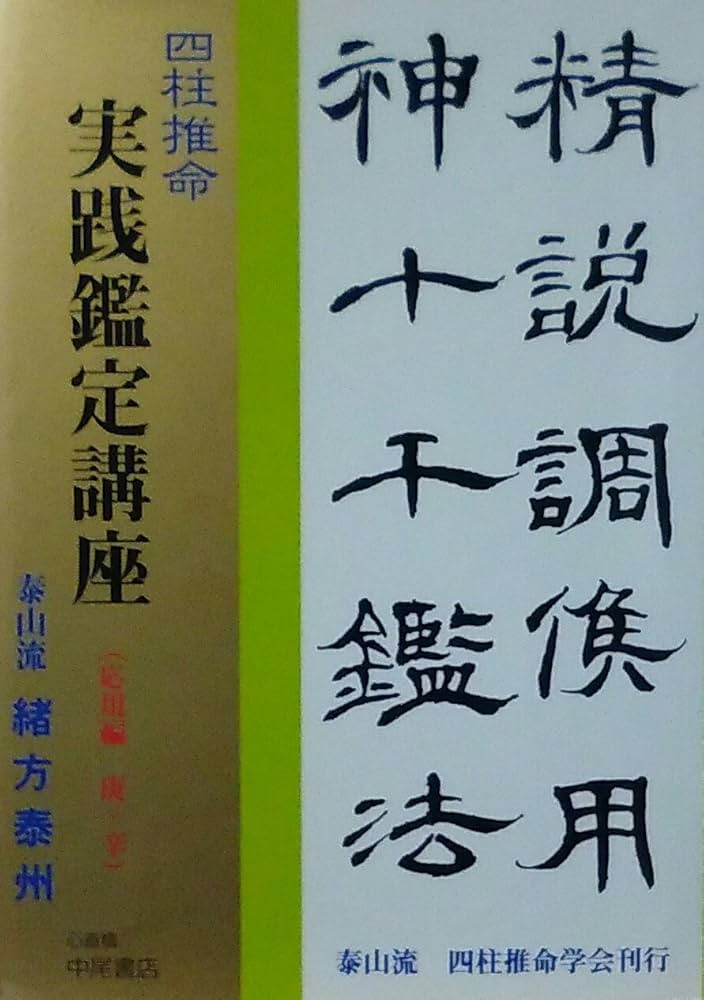 精説調候用
神十干鑑法
四柱推命
実践鑑定講座
（応用編 庚・辛）
泰山流 緒方泰州
心斎橋
中尾書店
泰山流 四柱推命学会刊行